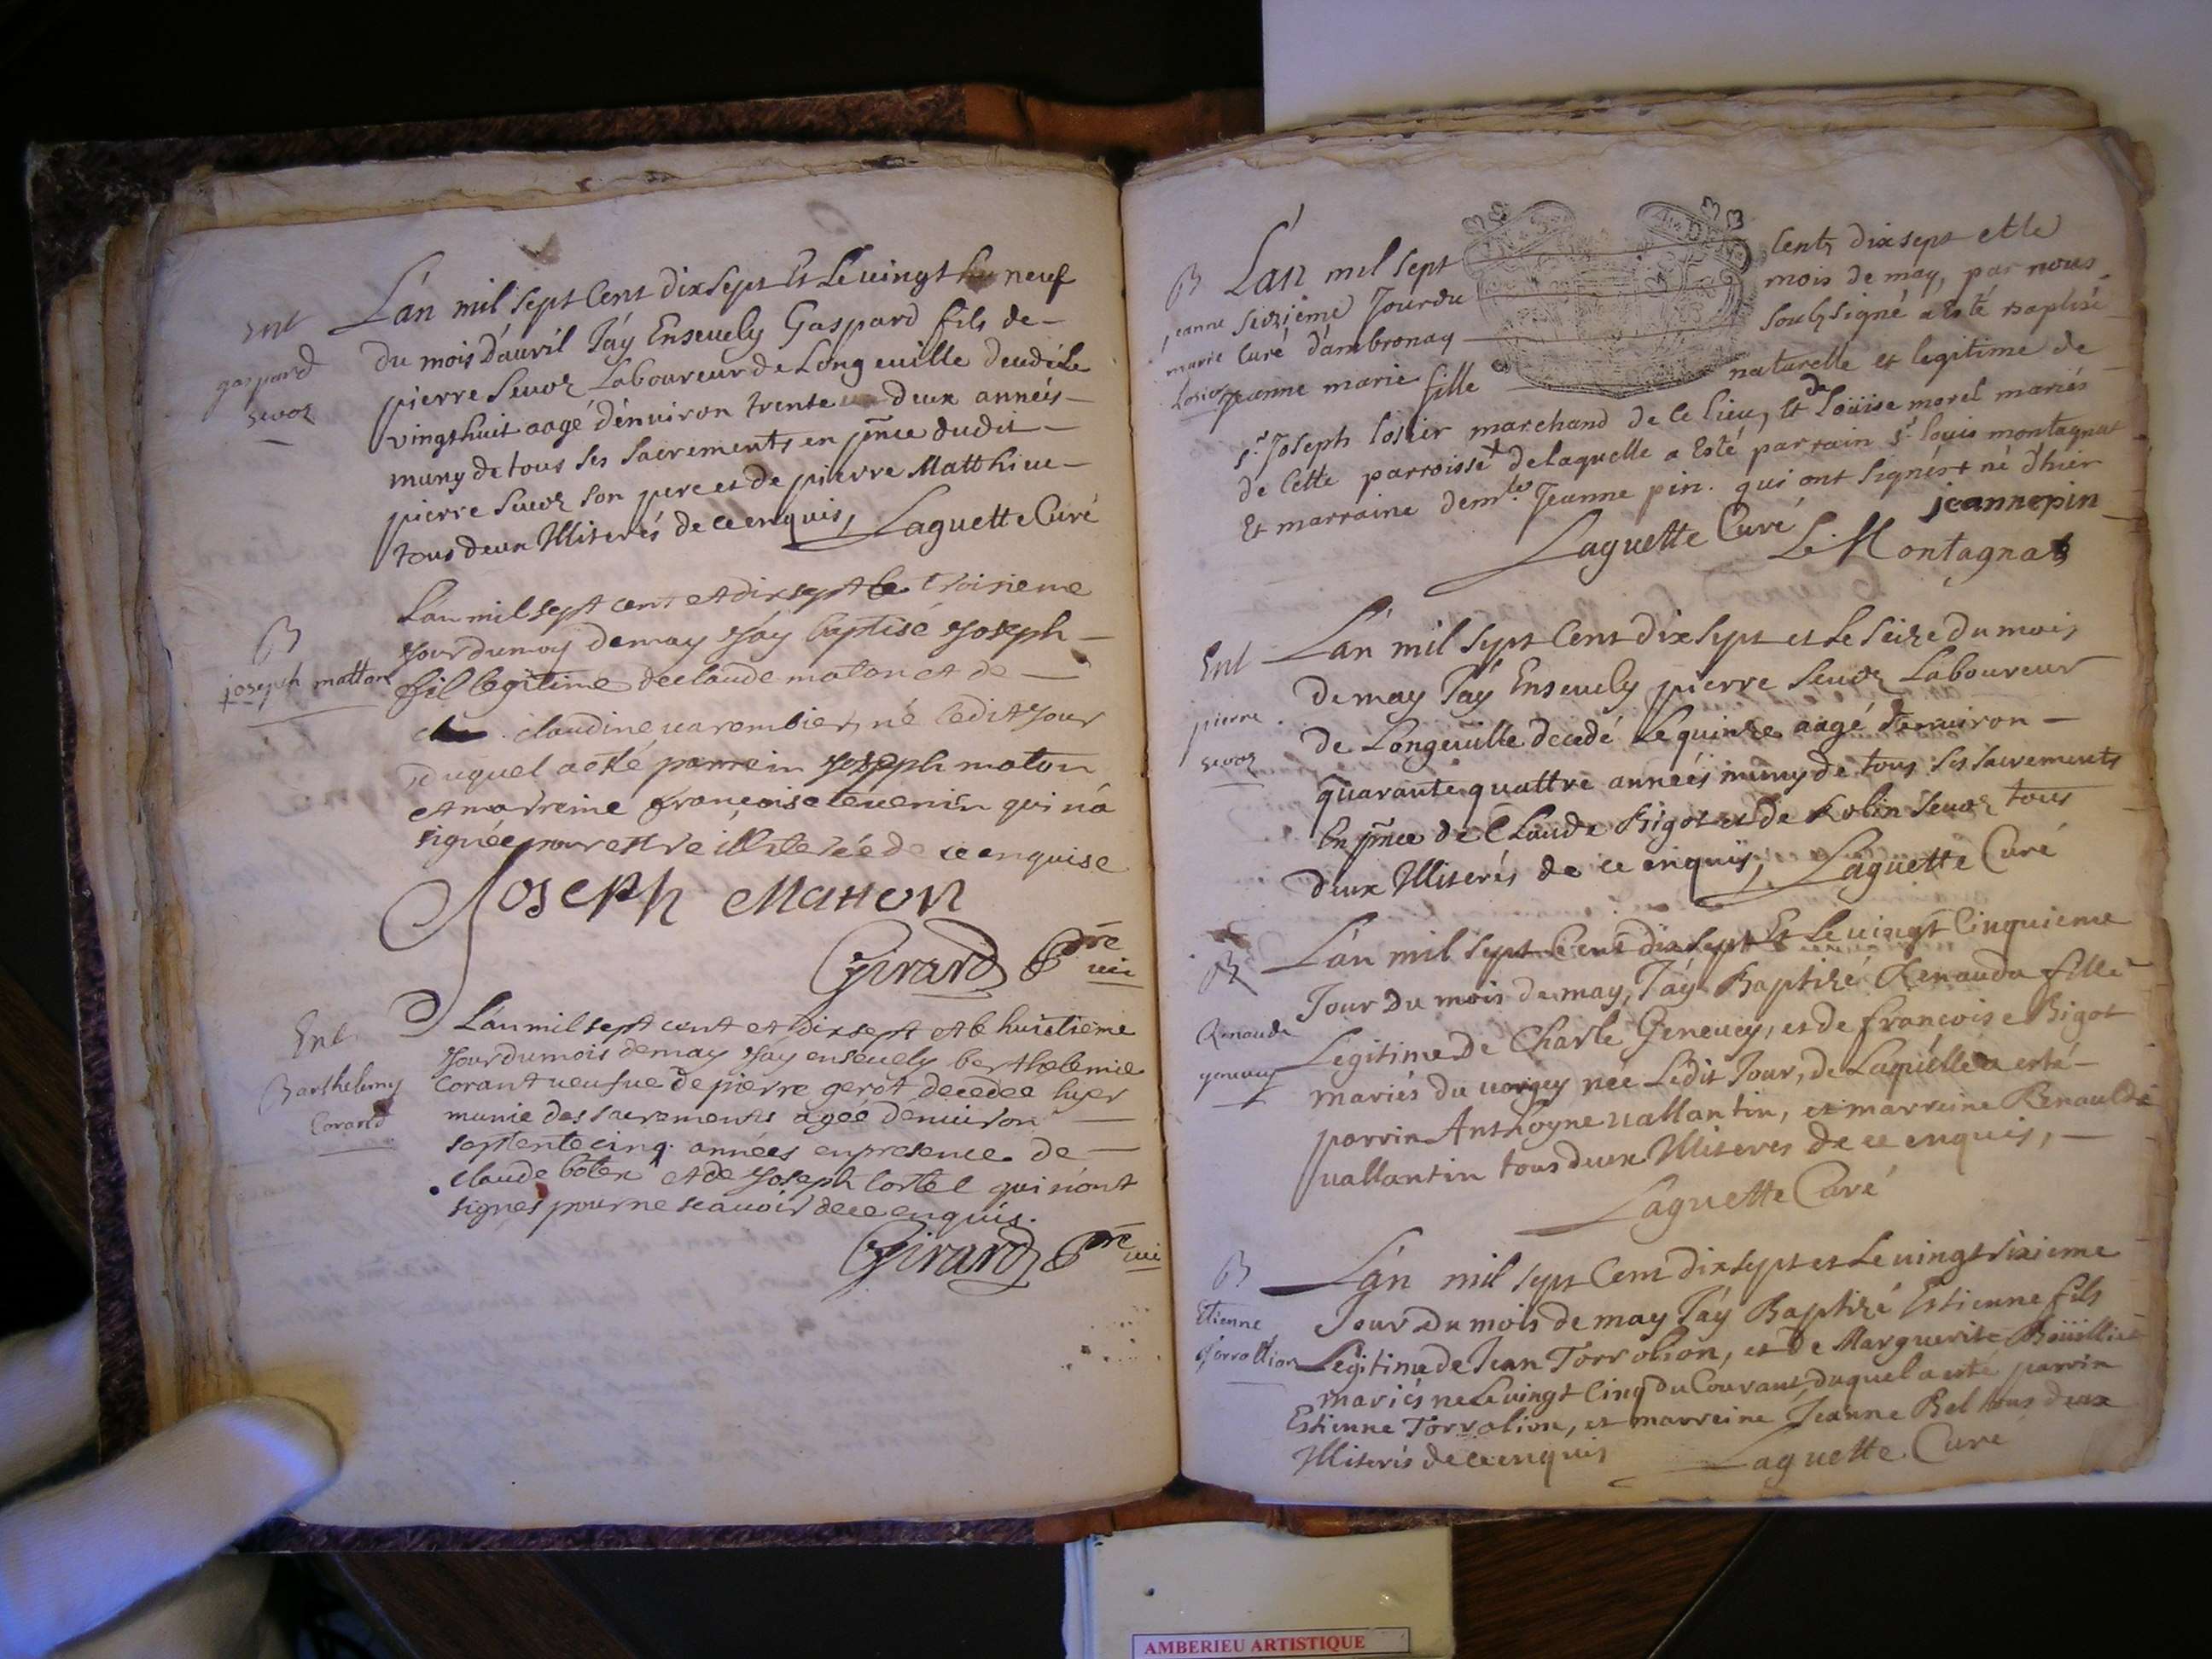 Ent
gaspard
Sevoz
L'an mil sept Cent dix sept et Le vingt neuf
du mois d'avril J'ay Ensevely Gaspard fils de
pierre Sevoz Laboureur de Longeville decedé Le
vingthuit aagé d'enuiron trente deux années
muny de tous ses sacrements, en pnce dudit
pierre Sevoz son pere et de pierre Matthieu
tous deux Illiterés de ce enquis, Laguette Curé
B
joseph matton
Lan mil sept cent et dix sept le troisieme
jour du moy de may j'ay baptisé joseph
fil legitime de claude maton et de
claudine uarombier, né ledit jour
duquel a esté parrein joseph maton
et marreine françoise teuenin qui n'a
signée pour estre illiterée de ce enquise
Joseph Matton
Girard Ptre vic
Ent
Barthelemy
Corand
L'an mil sept cent et dix sept et le huictieme
jour du mois de may j'ay enseuely berthelemie
corant ueufue de pierre gerot decedee hyer
munie des sacrements agée denuiron
septente cinq années en presence de
claude et de joseph Cortel qui n'ont
signés pour ne scauoir de ce enquis.
Girard Ptre vic
B
jeanne
marie
Losier
L'an mil sept Cents dix sept et le
seizième Jour du mois de may, par nous
Curé d'ambronay soubsigné a esté baptisé
jeanne marie fille naturelle et legitime de
sr. Joseph losier marchand de ce lieu, et de Loüise morel mariés
de cette parroisse + de laquelle a Esté parrain sr. louis montagnat
Et marraine demlle. Jeanne pin. qui ont signés + né d'hier
jeanne pin
Laguette Curé L. Montagnat
Ent
pierre
sevoz
L'an mil sept Cent Dix sept et le seize du mois
de may J'ay Ensevely pierre Sevoz Laboureur
de Longeville decedé Le quinze aagé d'enuiron
quarante quattre années muny de tous ses sacrements
En pnce de Claude Bigot et de Sevoz tous
deux Illiterés de ce enquis, Laguette Curé
B
Renaude
geneuey
L'an mil sept Cent dix sept Et Le vingt Cinquieme
Jour Du mois de may, J'ay Baptizé Renauda fille
Legitime De Charle Geneuey, et de francoise Bigot
mariés du née Ledit Jour, de Laquelle a esté
parrin Anthoyne uallantin, et marreine Renaulde
uallantin tous deux Illiteres de ce enquis,
Laguette Curé
B
Etienne
torrollion
L'an mil sept Cent dix sept et Le vingt sixieme
Jour Du mois de may J'ay Baptizé Estienne fils
Legitime de Jean Torrolion, et de Marguerite
mariés né Le vingt Cinq du Courant duquel a esté parrin
Estienne Torrolion, et marreine Jeanne Bel tous deux
Illiterés de ce enquis Laguette Curé
AMBERIEU ARTISTIQUE